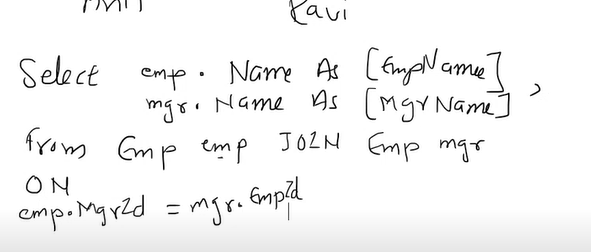 Ravi
Select emp. Name As [EmpName],
mgr. Name As [MgrName]
from Emp emp JOIN Emp mgr
ON
emp.MgrId = mgr.EmpId